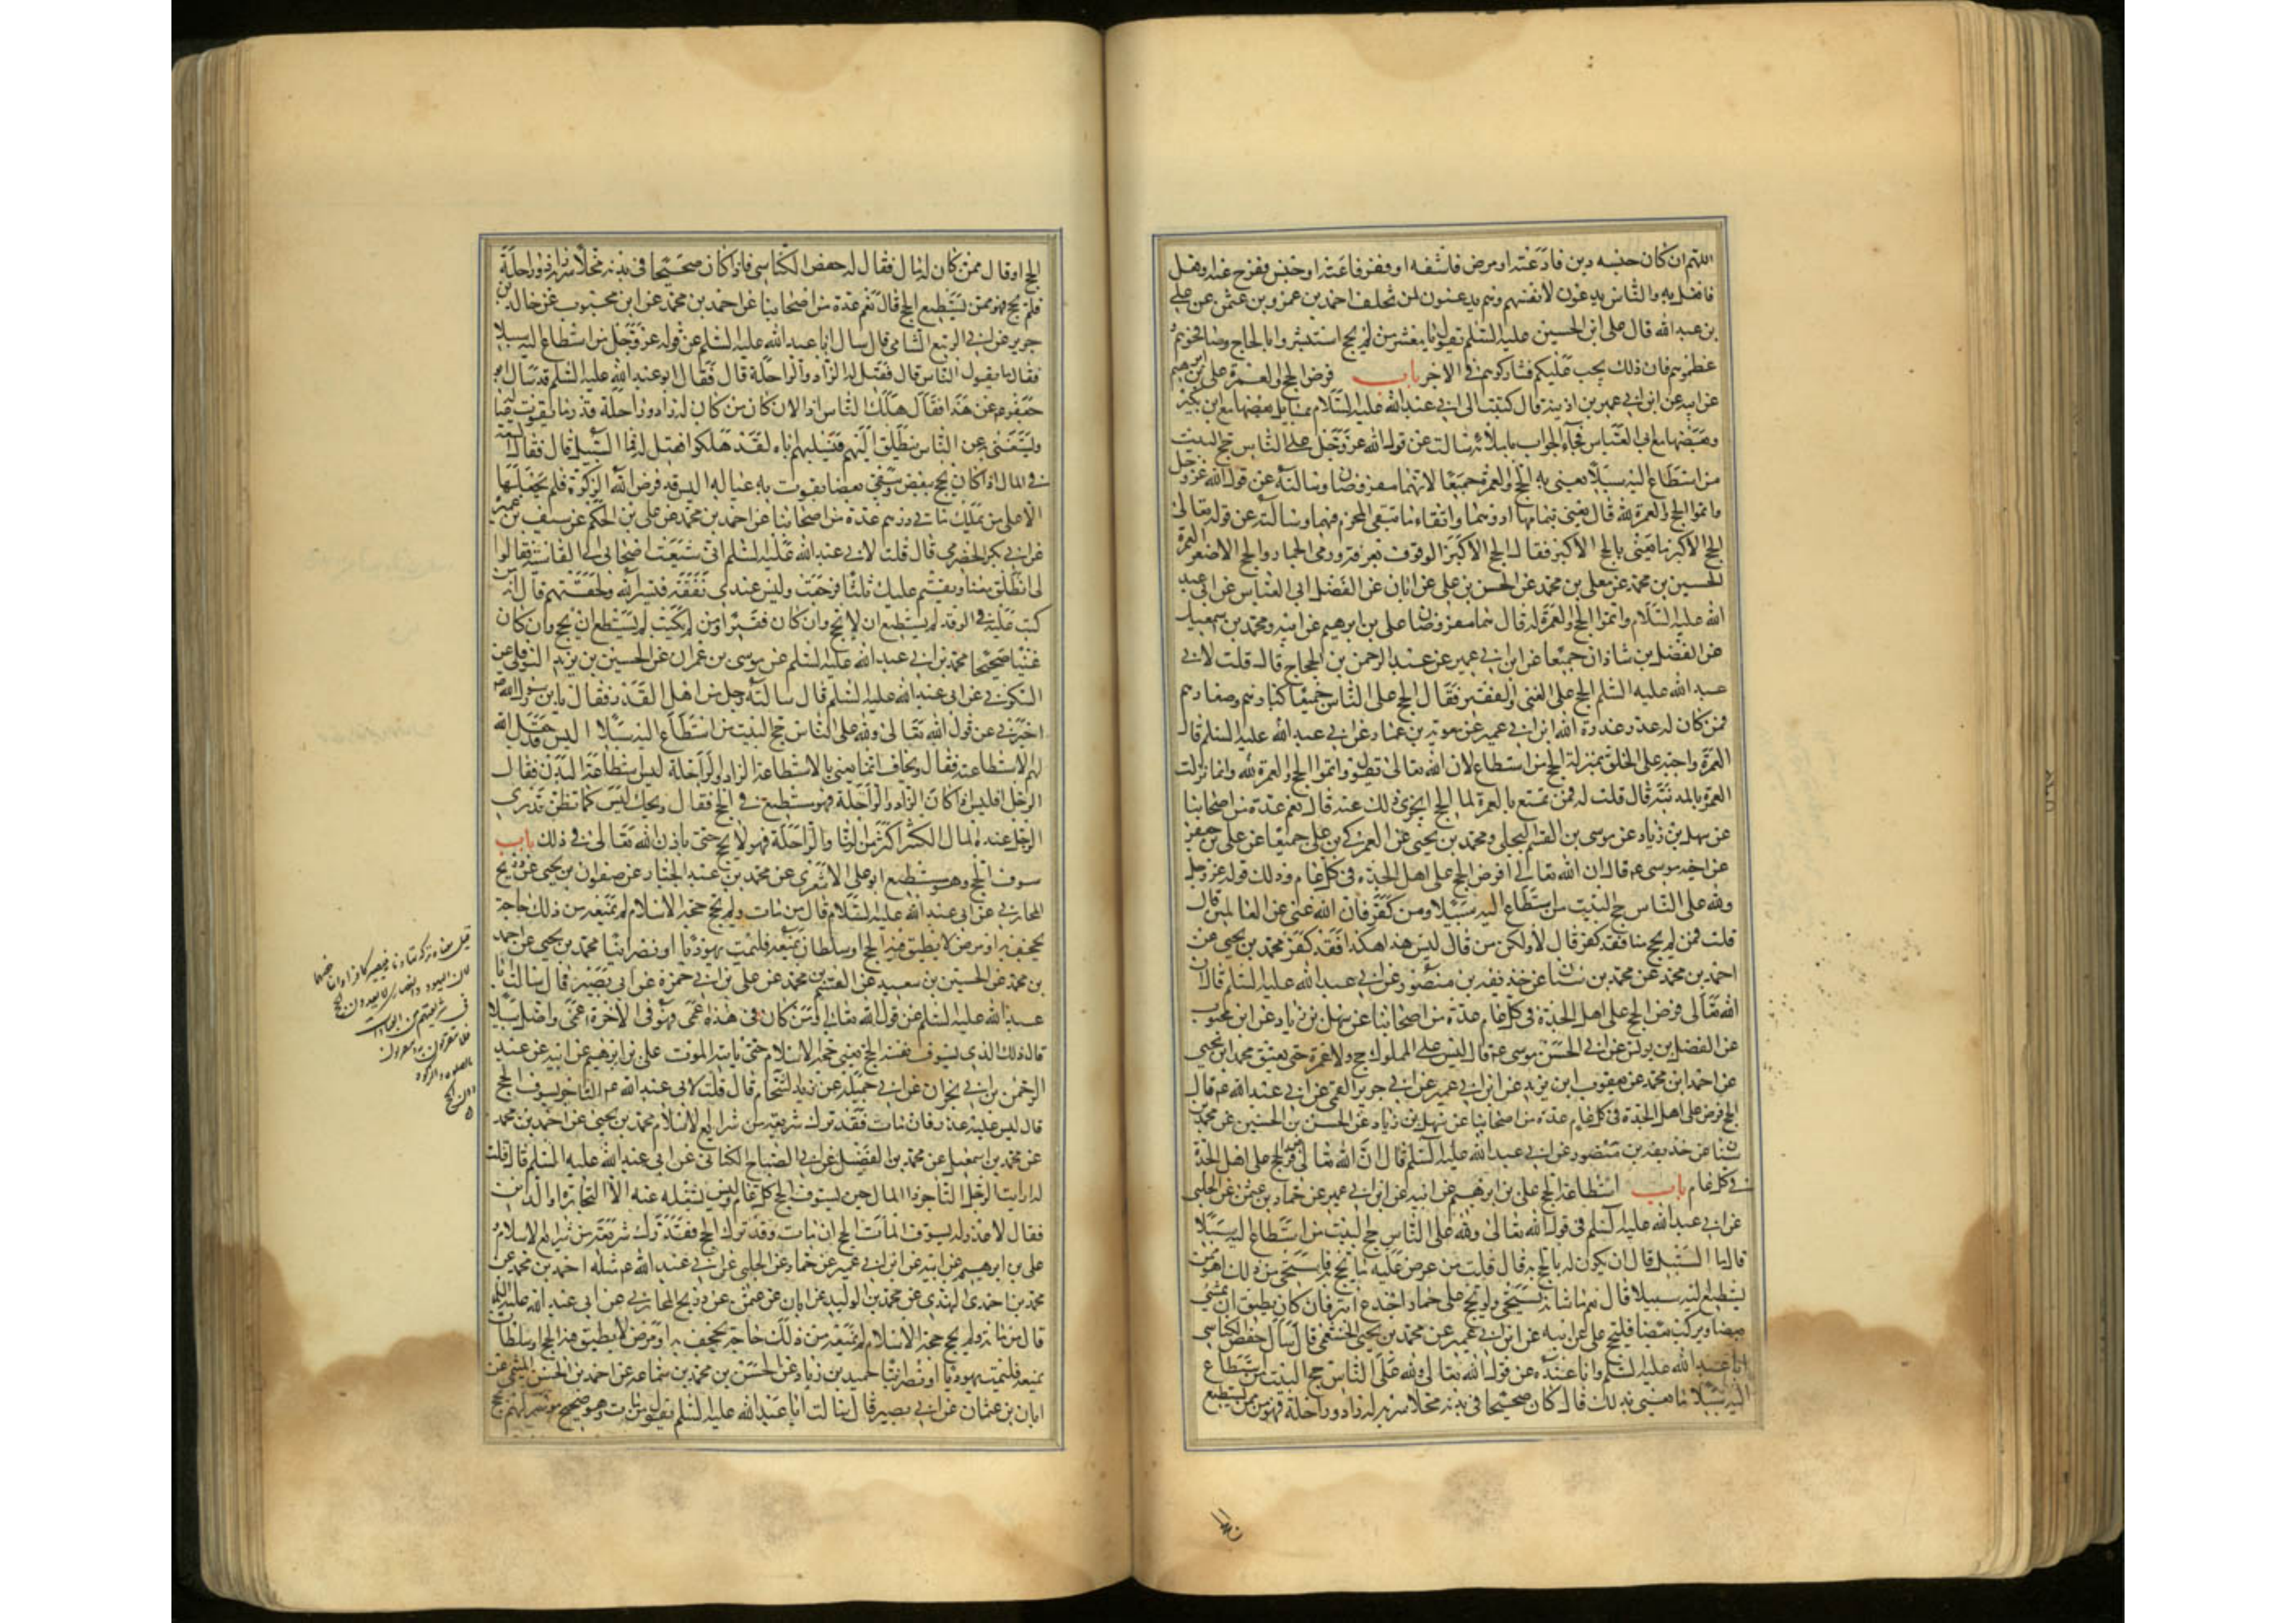 اللهم ان كان حبسه دين فادّ عنه او مرض فاشفه او فقر فاغنه او حبس ففرج عنه او فعل
فافعل به والناس يدعون لانفسهم وهم يدعون لمن تخلف احمد بن عن عمرو بن عثمن عن علي
بن عبد الله قال علي ابن الحسين عليه السلم يقول يا معشر من لم يحج استبشروا بالحاج وصافحوهم و
عظموهم فان ذلك يجب عليكم فشاركوهم في الاجر باب فرض الحج والعمرة علي بن ابرهيم
عن ابيه عن ابن ابي عمير عن بن اذينة قال كتبت الى ابي عبد الله عليه السلام بمسايل بعضها مع ابن بكير
وبعضها مع ابي العباس فجاء الجواب باملائه سالت عن قول الله عز وجل على الناس حج البيت
من استطاع اليه سبيلا يعني به الحج والعمرة جميعا لانهما مفروضان وسالته عن قول الله عز وجل
واتموا الحج والعمرة لله قال يعني بتمامهما اداءهما واتقاء ما يتقي المحرم فيهما وسالته عن قوله تعالى
الحج الاكبر ما يعني بالحج الاكبر فقال الحج الاكبر الوقوف بعرفة ورمي الجمار والحج الاصغر العمرة
الحسين بن محمد عن معلى بن محمد عن الحسن بن علي عن ابان عن الفضل ابي العباس عن ابي عبد
الله عليه السلام واتموا الحج والعمرة لله قال هما مفروضان علي بن ابرهيم عن ابيه ومحمد بن اسمعيل
عن الفضل بن شاذان جميعا عن ابن ابي عمير عن عبد الرحمن بن الحجاج قال قلت لابي
عبد الله عليه السلم الحج على الغني والفقير فقال الحج على الناس جميعا كبارهم وصغارهم
فمن كان له عذر عذره الله ابن ابي عمير عن معوية بن عمار عن ابي عبد الله عليه السلم قال
العمرة واجبة على الخلق بمنزلة الحج من استطاع لان الله تعالى يقول واتموا الحج والعمرة لله وانما نزلت
العمرة بالمدينة قال قلت له فمن تمتع بالعمرة الى الحج ايجزي ذلك عنه قال نعم عدة من اصحابنا
عن سهل بن زياد عن موسى بن القسم البجلي ومحمد بن يحيى عن العمركي بن علي جميعا عن علي بن جعفر
عن اخيه موسى ع قال ان الله تعالى افرض الحج على اهل الجدة في كل عام وذلك قوله عز وجل
ولله على الناس حج البيت من استطاع اليه سبيلا ومن كفر فان الله غني عن العالمين قال
قلت فمن لم يحج منا فقد كفر قال لا ولكن من قال ليس هذا هكذا فقد كفر محمد بن يحيى عن
احمد بن محمد عن محمد بن سنان عن حذيفة بن منصور عن ابي عبد الله عليه السلم قال ان
الله تعالى فرض الحج على اهل الجدة في كل عام عدة من اصحابنا عن سهل بن زياد عن ابن محبوب
عن الفضل بن يونس عن ابي الحسن موسى ع قال ليس على المملوك حج ولا عمرة حتى يعتق محمد ابن يحيى
عن احمد ابن محمد عن يعقوب ابن يزيد عن ابن ابي عمير عن ابي جرير القمي عن ابي عبد الله ع قال
الحج فرض على اهل الجدة في كل عام عدة من اصحابنا عن سهل بن زياد عن الحسن بن الحسين عن محمد بن
سنان عن حذيفة بن منصور عن ابي عبد الله عليه السلم قال ان الله تعالى فرض الحج على اهل الجدة
في كل عام باب استطاعة الحج علي بن ابرهيم عن ابيه عن ابن ابي عمير عن حماد بن عثمن عن الحلبي
عن ابي عبد الله عليه السلم في قول الله تعالى ولله على الناس حج البيت من استطاع اليه سبيلا
قال ما السبيل قال ان يكون له ما يحج به قال قلت من عرض عليه ما يحج به فاستحيى من ذلك اهو ممن
يستطيع اليه سبيلا قال نعم ما شانه يستحيى ولو يحج على حمار اجدع ابتر فان كان يطيق ان يمشي
بعضا ويركب بعضا فليحج علي عن ابيه عن ابن ابي عمير عن محمد بن يحيى الخثعمي قال سال حفص الكناسي
ابا عبد الله عليه السلم وانا عنده عن قول الله تعالى ولله على الناس حج البيت من استطاع
اليه سبيلا ما يعني بذلك قال من كان صحيحا في بدنه مخلا سربه له زاد وراحلة فهو ممن يستطيع
الحج او قال ممن كان له مال فقال له حفص الكناسي فاذا كان صحيحا في بدنه مخلا سربه له زاد وراحلة
فلم يحج فهو ممن يستطيع الحج قال نعم عدة من اصحابنا عن احمد بن محمد عن ابن محبوب عن خالد بن
جرير عن ابي الربيع الشامي قال سال ابا عبد الله عليه السلم عن قوله عز وجل من استطاع اليه سبيلا
فقال ما يقول الناس قال فقيل له الزاد والراحلة قال فقال ابو عبد الله عليه السلم قد سال ابو
جعفر ع عن هذا فقال هلك الناس اذا لان كان من كان له زاد وراحلة قدر ما يقوت عياله
ويستغني به عن الناس ينطلق اليهم فيسلبهم اياه لقد هلكوا فقيل له فما السبيل قال فقال السعة
في المال اذا كان يحج ببعض ويبقي بعضا يقوت به عياله اليس قد فرض الله الزكوة فلم يجعلها
الا على من يملك مأتي درهم عدة من اصحابنا عن احمد بن محمد عن علي بن الحكم عن سيف بن عميرة
عن ابي بكر الحضرمي قال قلت لابي عبد الله عليه السلم اني شيعت اصحابي الى القادسية فقالوا
لي انطلق معنا ونقيم عليك ثلثا فرجعت وليس عندي نفقة فيسر الله ولحقتهم قال انه من
كتب عليه في الوفد لم يستطع ان لا يحج وان كان فقيرا ومن لم يكتب لم يستطع ان يحج وان كان
غنيا صحيحا محمد بن ابي عبد الله عليه السلم عن موسى بن عمران عن الحسين بن يزيد النوفلي عن
السكوني عن ابي عبد الله عليه السلم قال سالته رجل من اهل القدر فقال يا بن رسول الله ص
اخبرني عن قول الله تعالى ولله على الناس حج البيت من استطاع اليه سبيلا اليس قد جعل الله
لهم الاستطاعة فقال ويحك انما يعني بالاستطاعة الزاد والراحلة ليس استطاعة البدن فقال
الرجل افليس اذا كان الزاد والراحلة فهو مستطيع في الحج فقال ويحك ليس كما تظن قد ترى
الرجل عنده المال الكثير اكثر من الزاد والراحلة فهو لا يحج حتى ياذن الله تعالى في ذلك باب
سوف الحج وهو مستطيع ابو علي الاشعري عن محمد بن عبد الجبار عن صفوان بن يحيى عن ذريح
المحاربي عن ابي عبد الله عليه السلام قال من مات ولم يحج حجة الاسلام لم تمنعه من ذلك حاجة
تجحف به او مرض لا يطيق فيه الحج او سلطان يمنعه فليمت يهوديا او نصرانيا محمد بن يحيى عن احمد
بن محمد عن الحسين بن سعيد عن القسم بن محمد عن علي بن ابي حمزة عن ابي بصير قال سالت ابا
عبد الله عليه السلم عن قول الله تعالى ومن كان في هذه اعمى فهو في الاخرة اعمى واضل سبيلا
قال ذلك الذي يسوف نفسه الحج يعني حجة الاسلام حتى ياتيه الموت علي بن ابرهيم عن ابيه عن عبد
الرحمن بن ابي نجران عن ابي جميلة عن زيد الشحام قال قلت لابي عبد الله ع التاجر يسوف الحج
قال ليس عليه عذر فان مات فقد ترك شريعة من شرايع الاسلام محمد بن يحيى عن احمد بن محمد
عن محمد بن اسمعيل عن محمد بن الفضيل عن ابي الصباح الكناني عن ابي عبد الله عليه السلم قال قلت
له ارايت الرجل التاجر ذا المال حين يسوف الحج كل عام وليس يشغله عنه الا التجارة او الدين
فقال لا عذر له يسوف الحج ان مات وقد ترك الحج فقد ترك شريعة من شرايع الاسلام
علي بن ابرهيم عن ابيه عن ابن ابي عمير عن حماد عن الحلبي عن ابي عبد الله ع مثله احمد بن محمد عن
محمد بن احمد النهدي عن محمد بن الوليد عن ابان عن عثمن عن ذريح المحاربي عن ابي عبد الله عليه السلم
قال من مات ولم يحج حجة الاسلام لم تمنعه من ذلك حاجة تجحف به او مرض لا يطيق فيه الحج او سلطان
يمنعه فليمت يهوديا او نصرانيا حميد بن زياد عن الحسن بن محمد بن سماعة عن احمد بن الحسن الميثمي عن
ابان بن عثمان عن ابي بصير قال سالت ابا عبد الله عليه السلم يقول من مات وهو صحيح موسر لم يحج